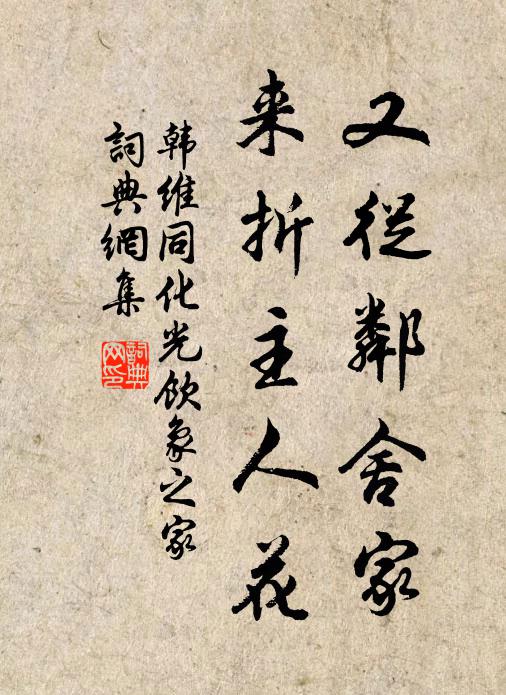 又從鄰舍家
来折主人花
韩维同化光饮象之家
詞典網集
詞典网印